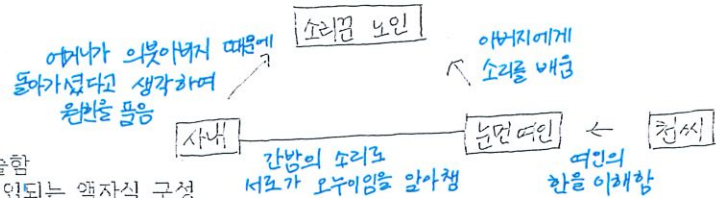 소리꾼 노인
어머니가 의붓아버지 때문에
돌아가셨다고 생각하며
원한을 품음
아버지에게
소리를 배움
사내
눈먼 여인
←
천씨
간밤의 소리로
서로가 오누이임을 알아챔
여인의
한을 이해함
술함
되는 액자식 구성